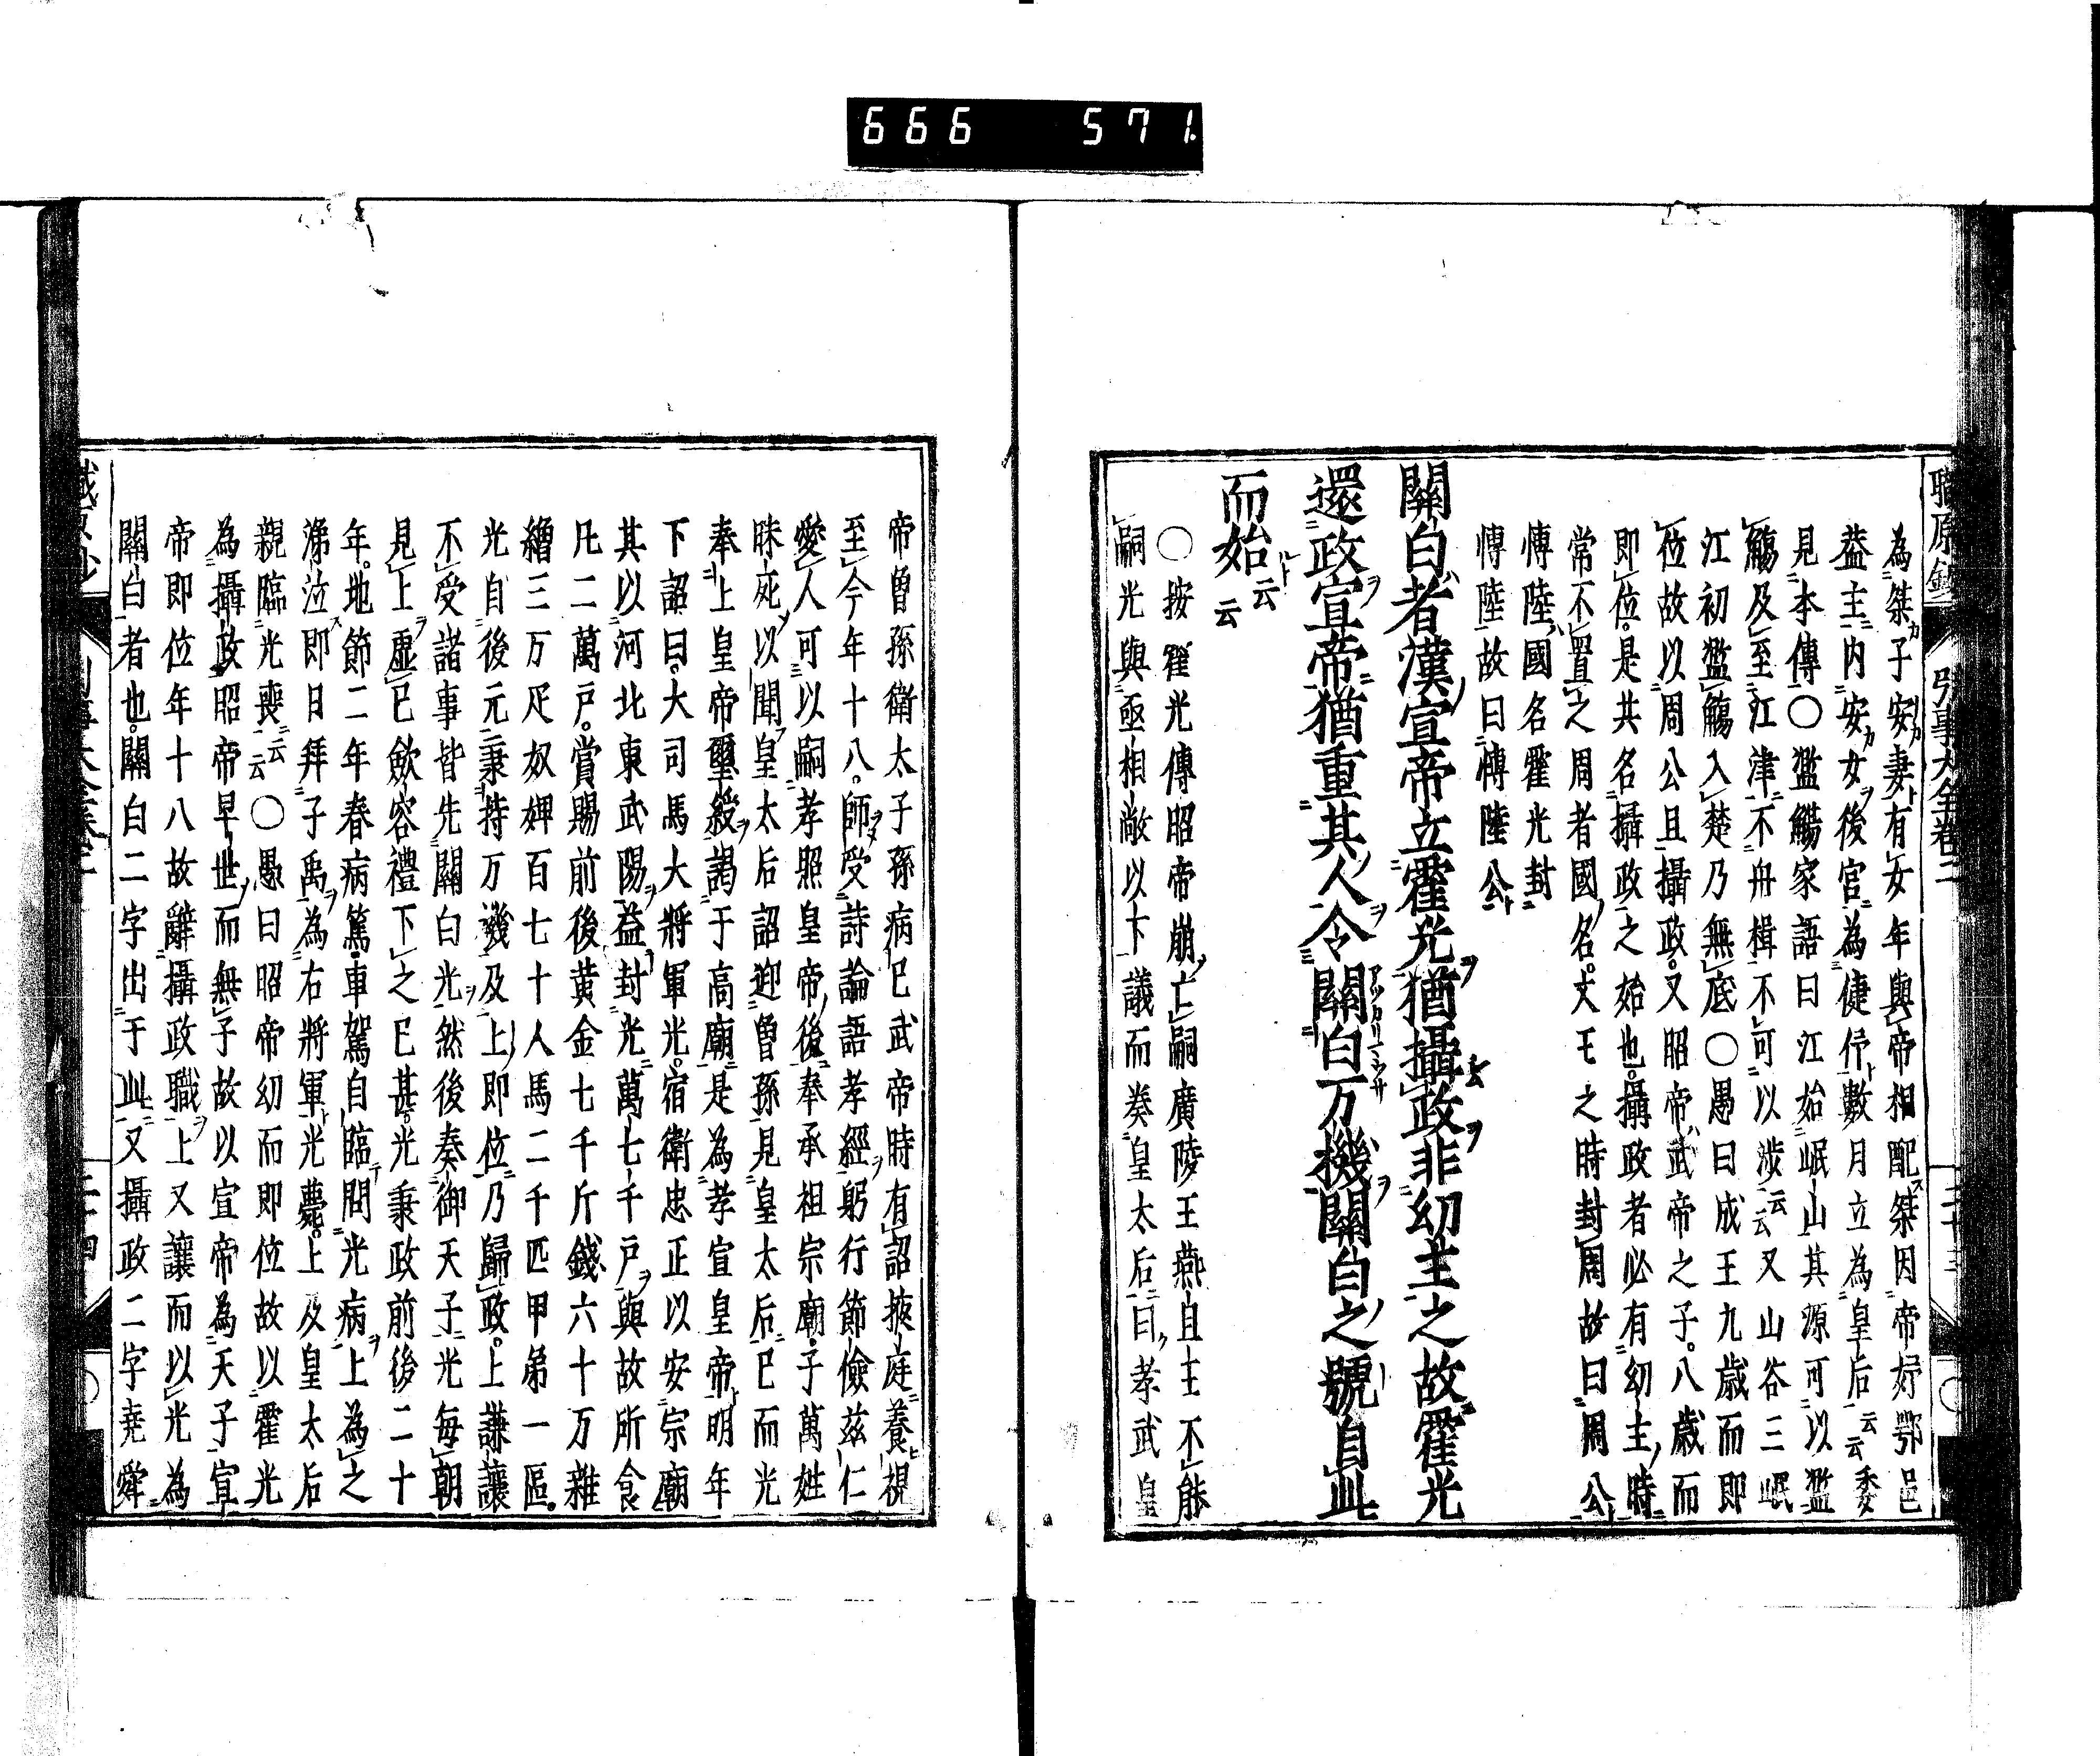 666 571.
職原鈔 引事大全卷二 二十三
為桀子安妻有女年與帝相配桀因帝好鄂邑
葢主內安女後宮為倢伃數月立為皇后云云委
見本傳〇濫觴家語曰江始岷山其源可以濫
觴及至江津不舟楫不可以涉云云又山谷三岷
江初濫觴入楚乃無底〇愚曰成王九歳而即
位故以周公且攝政。又昭帝武帝之子。八歳而
即位。是共名攝政之始也。攝政者必有幼主時
常不置之周者國名。文王之時封周故曰周公
博陸國名霍光封
博陸故曰博陸公
關白者漢宣帝立霍光猶攝政非幼主之故霍光
還政宣帝猶重其人令關白万機關白之號自此
而始云云
〇按霍光傳昭帝崩亡嗣廣陵王燕自主不能
嗣光與亟相敞以下議而奏皇太后曰孝武皇
帝曾孫衛太子孫病已武帝時有詔掖庭養視
至今年十八。師受詩論語孝經躬行節儉茲仁
愛人可以嗣孝照皇帝後奉承祖宗廟子萬姓
昧死以聞皇太后詔迎曽孫見皇太后已而光
奉上皇帝璽綬謁于高廟是為孝宣皇帝明年
下詔曰。大司馬大將軍光。宿衛忠正以安宗廟
其以河北東武陽益封光萬七千戶與故所食
凡二萬戶。賞賜前後黄金七千斤錢六十万雜
繒三万疋奴婢百七十人馬二千匹甲第一區。
光自後元秉持万機及上即位乃歸政。上謙讓
不受諸事皆先關白光然後奏御天子光每朝
見上虛已斂容禮下之已甚。光秉政前後二十
年。地節二年春病篤車駕自臨問光病上為之
涕泣即日拜子禹為右將軍光薨。上及皇太后
親臨光喪云云〇愚曰昭帝幼而即位故以霍光
為攝政昭帝早世而無子故以宣帝為天子宣
帝即位年十八故辭攝政職上又讓而以光為
關白者也。關白二字出于此又攝政二字堯舜